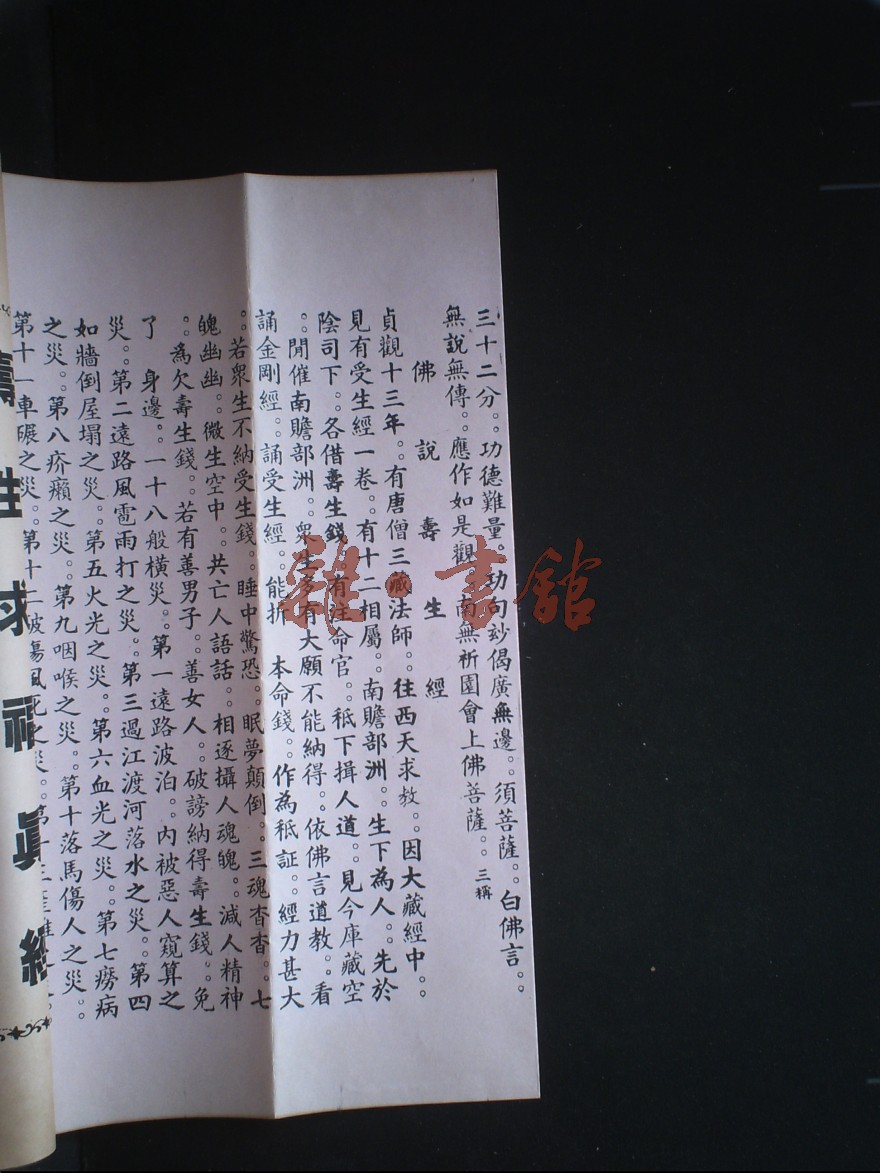 三十二分。功德難量。功句玅偈廣無邊。須菩薩。白佛言。
無說無傳。應作如是觀。南無祈園會上佛菩薩。三稱
佛說壽生經
貞觀十三年。有唐僧三藏法師。往西天求教。因大藏經中。
見有受生經一卷。有十二相屬。南贍部洲。生下為人。先於
陰司下。各借壽生錢。有注命官。秪下揖人道。見今庫藏空
。閒催南贍部洲。眾生多有大願不能納得。依佛言道教。看
誦金剛經。誦受生經。能折　本命錢。作為秪証。經力甚大
。若眾生不納受生錢。睡中驚恐。眠夢顛倒。三魂杳杳。七
魄幽幽。微生空中。共亡人語話。相逐攝人魂魄。減人精神
。為欠壽生錢。若有善男子。善女人。破謗納得壽生錢。免
了　身邊。一十八般橫災。第一遠路波泊。內被惡人窺算之
災。第二遠路風雹雨打之災。第三過江渡河落水之災。第四
如牆倒屋塌之災。第五火光之災。第六血光之災。第七癆病
之災。第八疥癩之災。第九咽喉之災。第十落馬傷人之災。
第十一車碾之災。第十二破傷風死之災。第十三
壽生求福真經
雜·書館